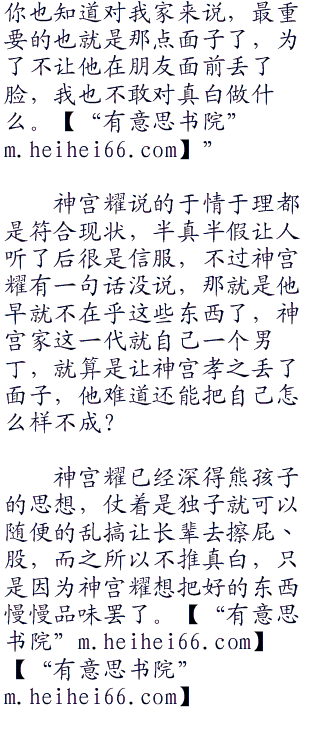 你也知道对我家来说，最重
要的也就是那点面子了，为
了不让他在朋友面前丢了
脸，我也不敢对真白做什
么。【“有意思书院”
m.heihei66.com】”
神宫耀说的于情于理都
是符合现状，半真半假让人
听了后很是信服，不过神宫
耀有一句话没说，那就是他
早就不在乎这些东西了，神
宫家这一代就自己一个男
丁，就算是让神宫孝之丢了
面子，他难道还能把自己怎
么样不成？
神宫耀已经深得熊孩子
的思想，仗着是独子就可以
随便的乱搞让长辈去擦屁、
股，而之所以不推真白，只
是因为神宫耀想把好的东西
慢慢品味罢了。【“有意思
书院”m.heihei66.com】
【“有意思书院”
m.heihei66.com】